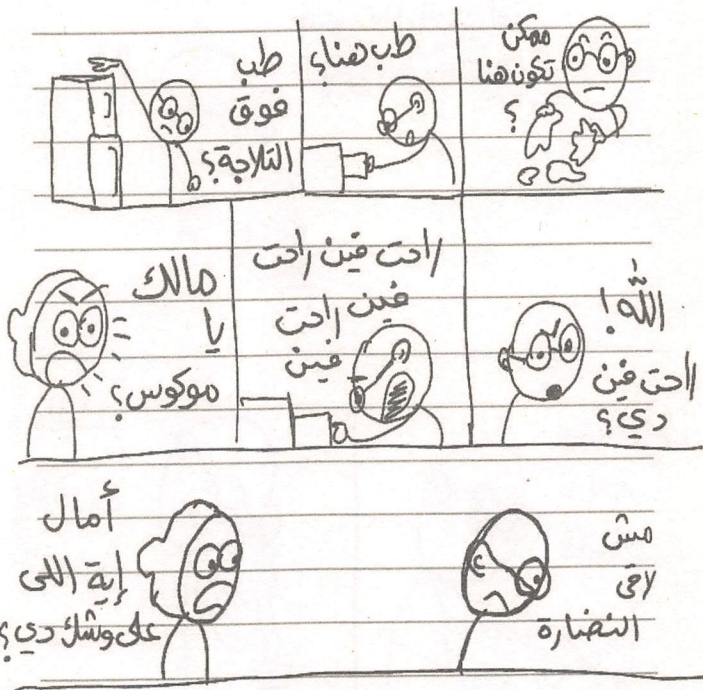 ممكن
تكون هنا
؟
طب هنا؟
طب
فوق
التلاجة؟
الله!
راحت فين
دي؟
راحت فين راحت
فين راحت
فين
مالك
يا
موكوس؟
مش
لاقى
النضارة
أمال
إية اللى
على وشك دي؟